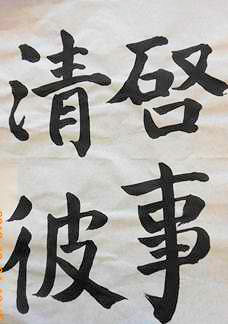 啓事
清彼